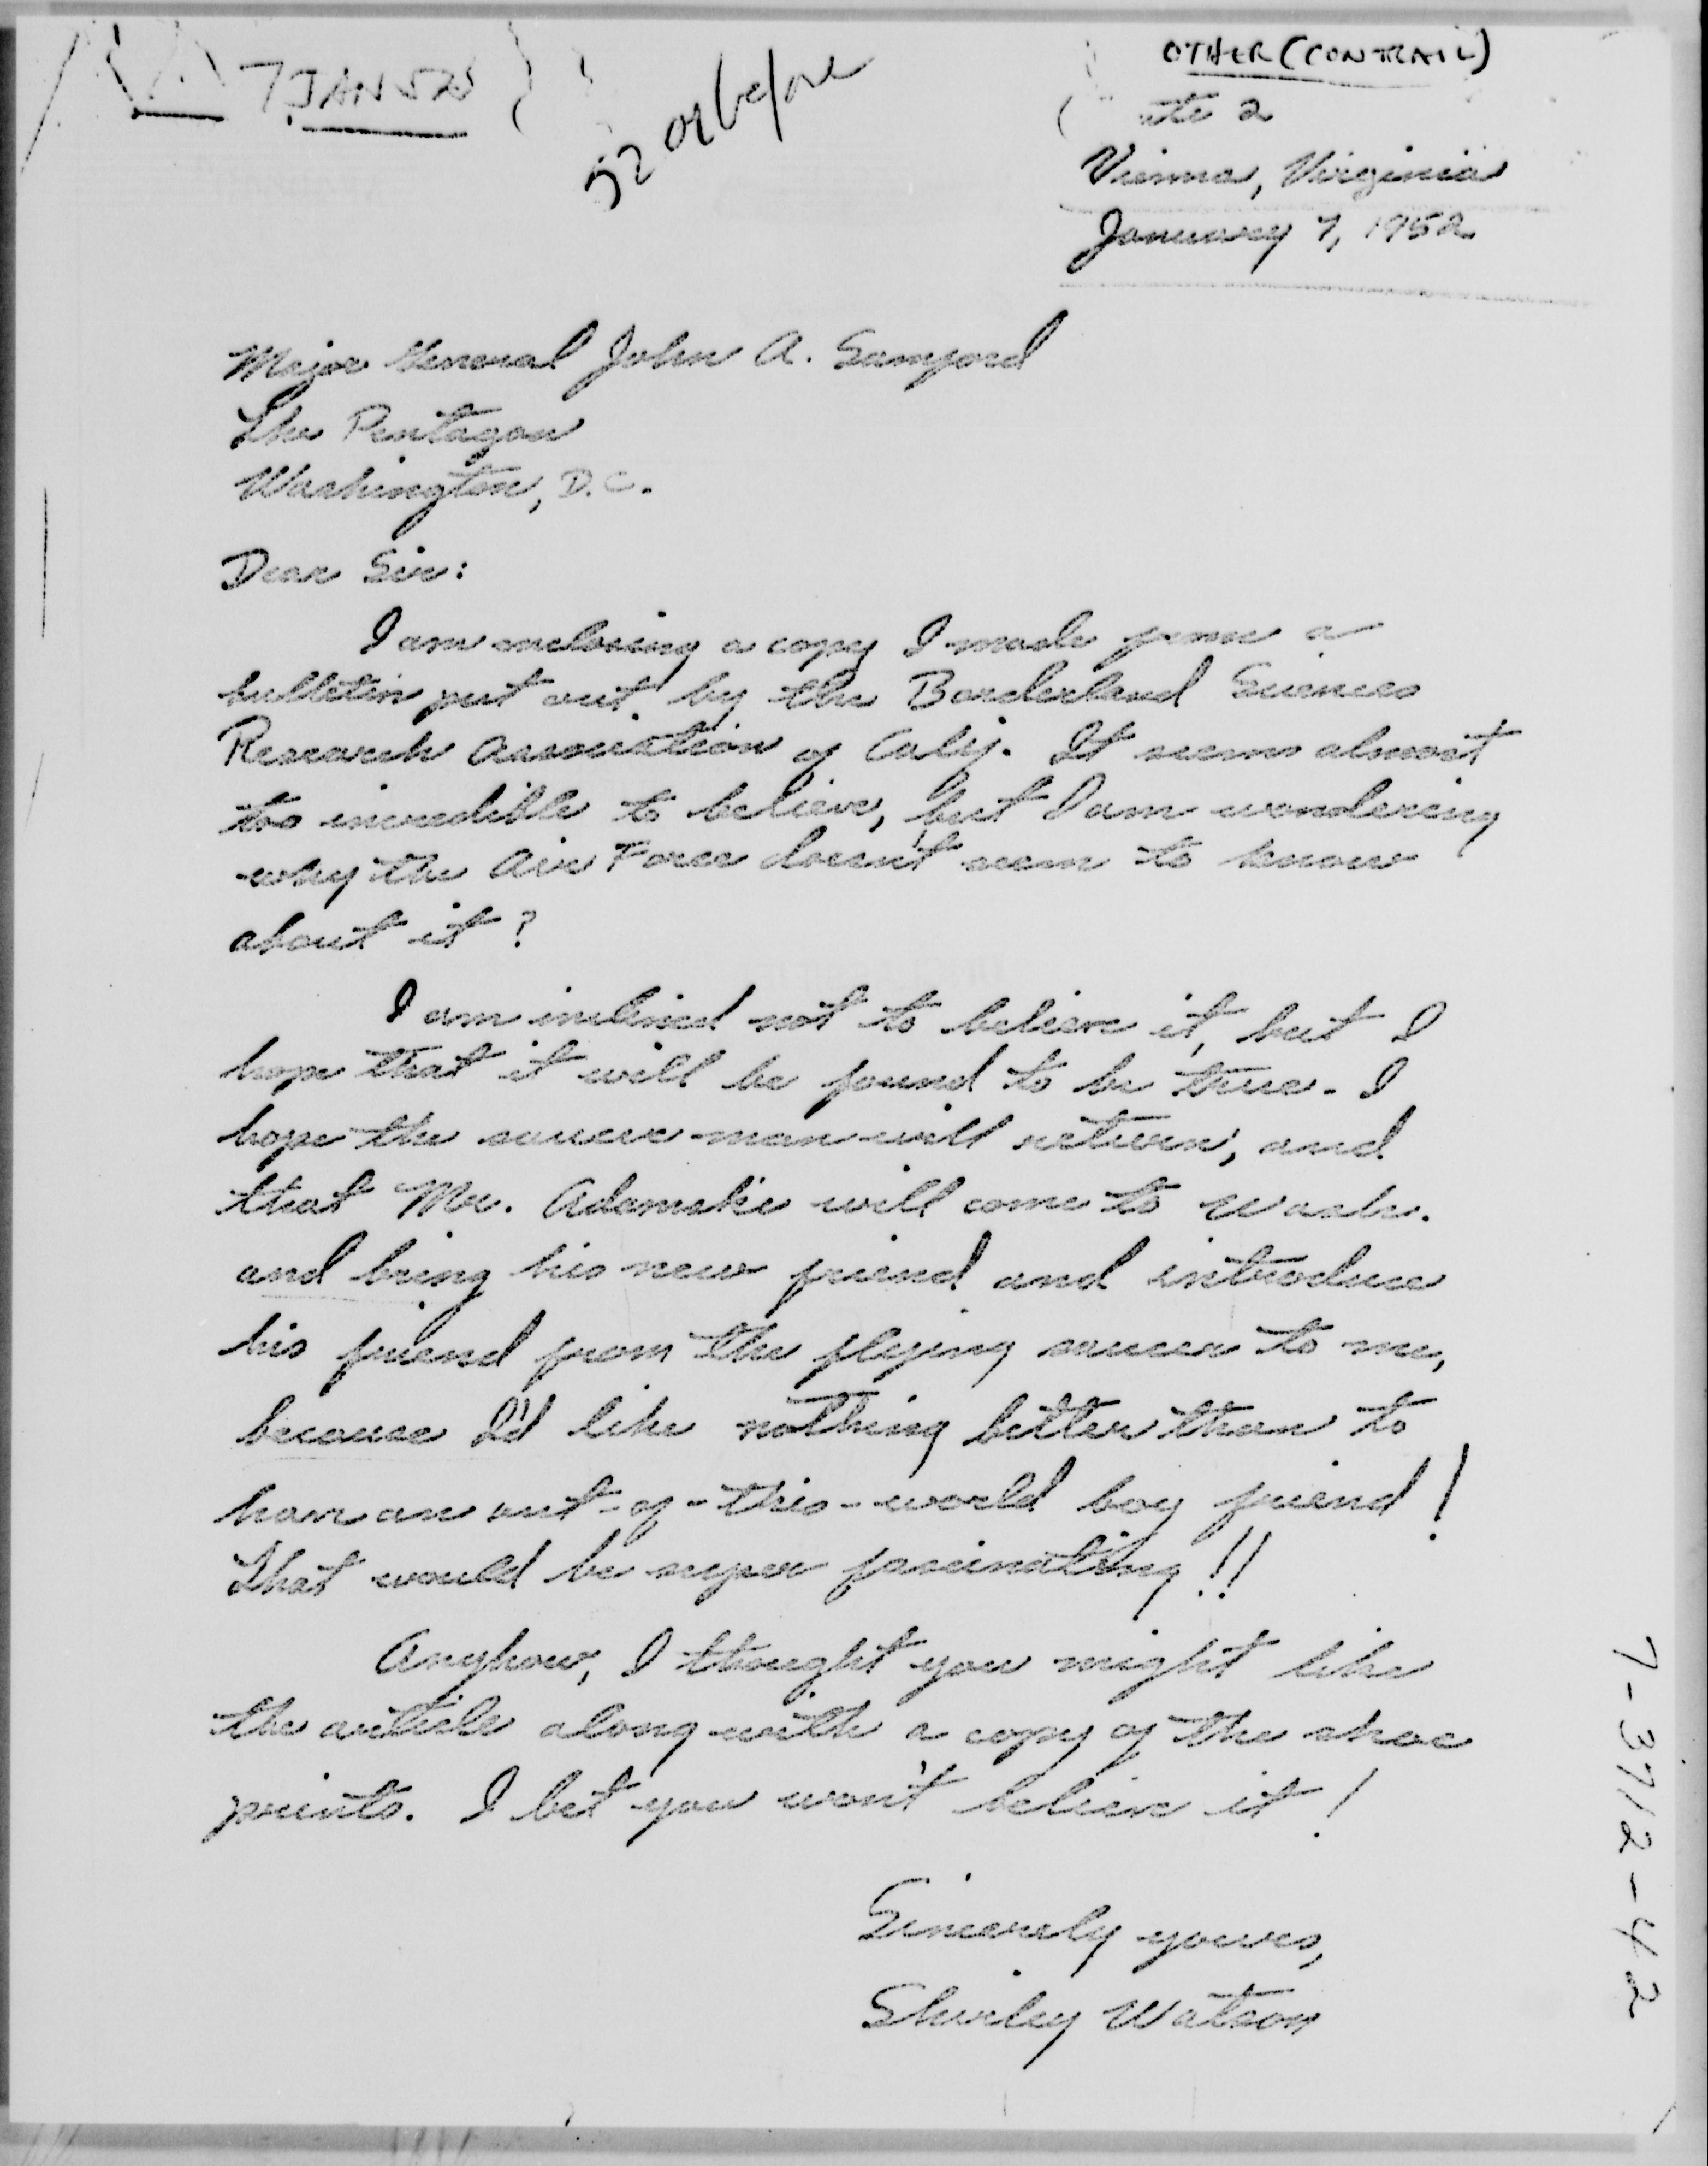 7 JAN 52
52 or before
OTHER (CONTRAIL)
Vienna, Virginia
January 7, 1952
Major General John A. Samford
The Pentagon
Washington, D.C.
Dear Sir:
I am enclosing a copy I made from a
bulletin put out by the Borderland Sciences
Research Association of Calif. It seems almost
too incredible to believe, but I am wondering
why the Air Force doesn't seem to know
about it?
I am inclined not to believe it, but I
hope that it will be found to be true. I
hope the saucer-man will return, and
that Mr. Adamski will come to Wash.
and bring his new friend and introduce
his friend from the flying saucer to me,
because I'd like nothing better than to
have an out-of-this-world boy friend!
That would be super fascinating!!
Anyhow, I thought you might like
the article along with a copy of the shoe
prints. I bet you won't believe it!
Sincerely yours,
Shirley Watson
7-3712-42